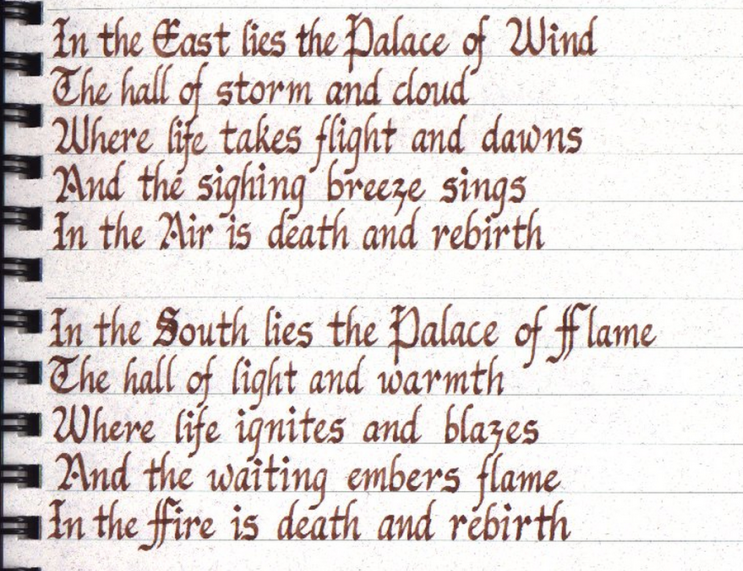 In the East lies the Palace of Wind
The hall of storm and cloud
Where life takes flight and dawns
And the sighing breeze sings
In the Air is death and rebirth
In the South lies the Palace of Flame
The hall of light and warmth
Where life ignites and blazes
And the waiting embers flame
In the Fire is death and rebirth